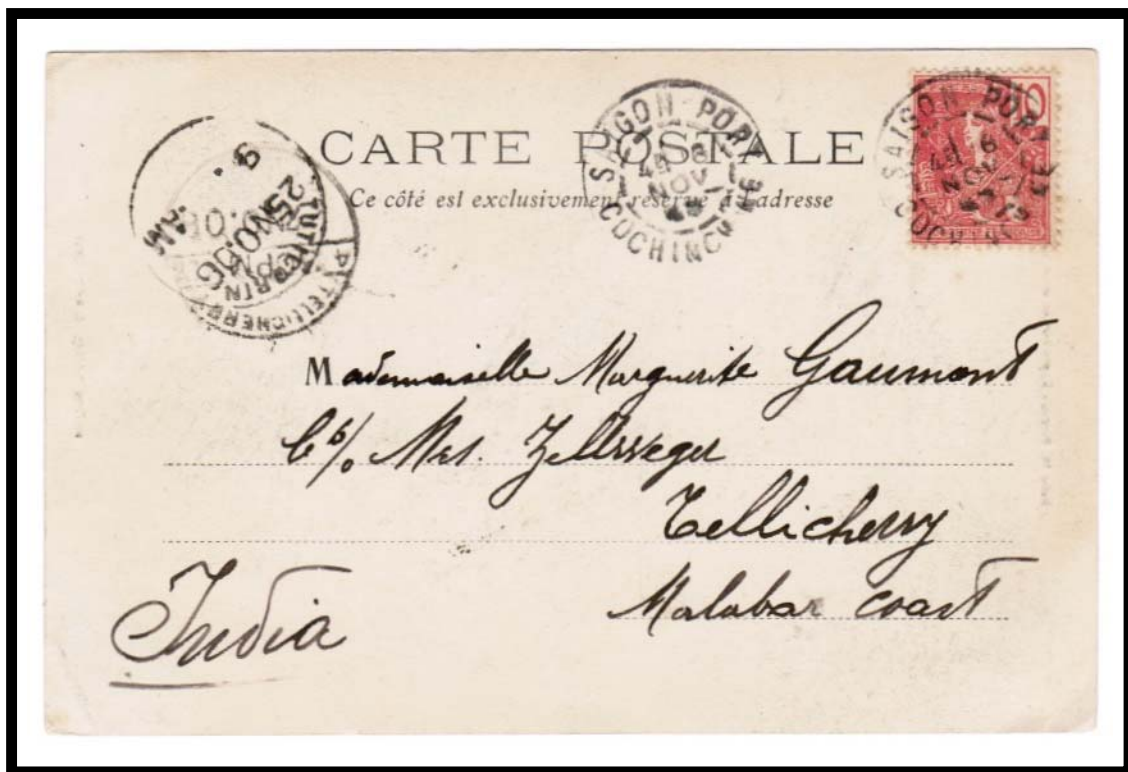 CARTE POSTALE
Ce côté est exclusivement réservé à l'adresse
SAIGON PORT
6
NOV
COCHINCHINE
10
SAIGON PORT
6
NOV
TUTICORIN
25 NO. 06
9 AM
TELLICHERRY
Mademoiselle Marguerite Gaumont
C/o Mrs. Zellweger
Tellicherry
Malabar coast
India